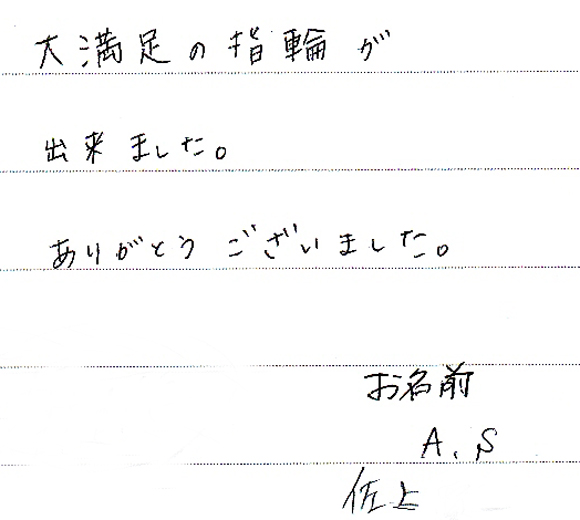 大満足の指輪が
出来ました。
ありがとうございました。
お名前
A.S
佐上